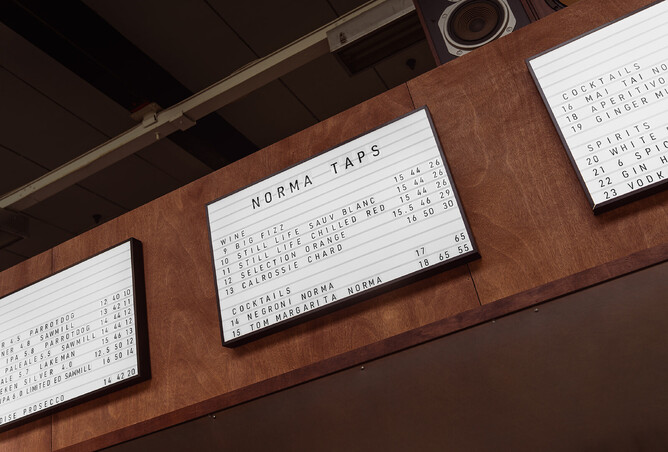 4.5 PARROTDOG 12 40 10
4.8 SAWMILL 13 42 11
IPA 5.8 PARROTDOG 14 44 12
PALE ALE 5.5 SAWMILL 14 44 12
ALE 5.7 LAKEMAN 15 46 13
KEN SILVER 4.0 12.5 50 12
IPA 6.0 LIMITED ED SAWMILL 16 50 14
PROSECCO 14 42 20
NORMA TAPS
WINE
9 BIG FIZZ 15 44 26
10 STILL LIFE SAUV BLANC 15 44 26
11 STILL LIFE CHILLED RED 15 44 26
12 SELECTION ORANGE 15.5 46 29
13 CALROSSIE CHARD 16 50 30
COCKTAILS
14 NEGRONI NORMA 17 65
15 TOM MARGARITA NORMA 18 65 55
COCKTAILS
16 MAI TAI NO
18 APERITIVO
19 GINGER MU
SPIRITS
20 WHITE
21 6 SPIC
22 GIN H
23 VODK